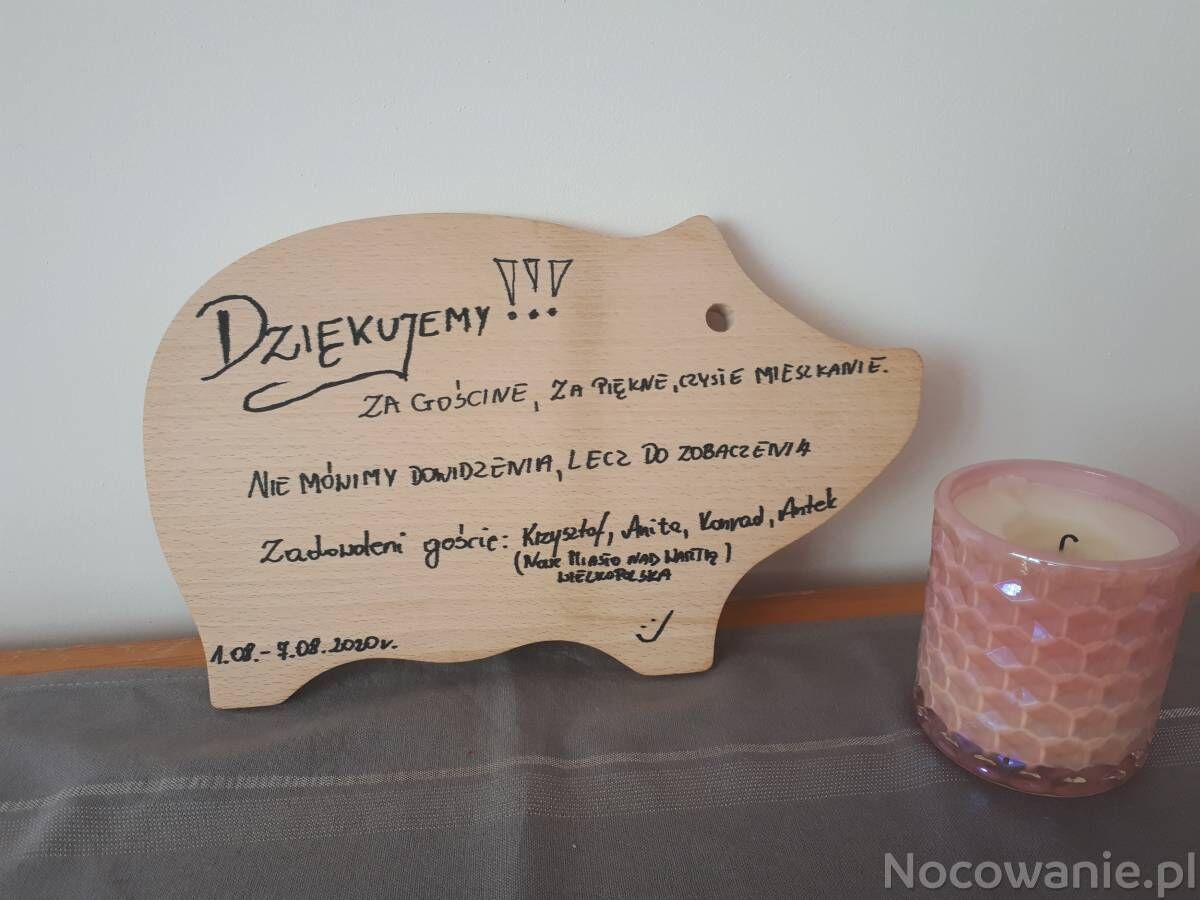 DZIĘKUJEMY !!!
ZA GOŚCINE, ZA PIĘKNE, CZYSIE MIESZKANIE.
NIE MÓWIMY DOWIDZENIA, LECZ DO ZOBACZENIA
Zadowoleni goście: Krzysztof, Anita, Konrad, Antek
(NOWE MIASTO NAD WARTĄ)
WIELKOPOLSKA
:)
1.08.-7.08.2020r.
Nocowanie.pl